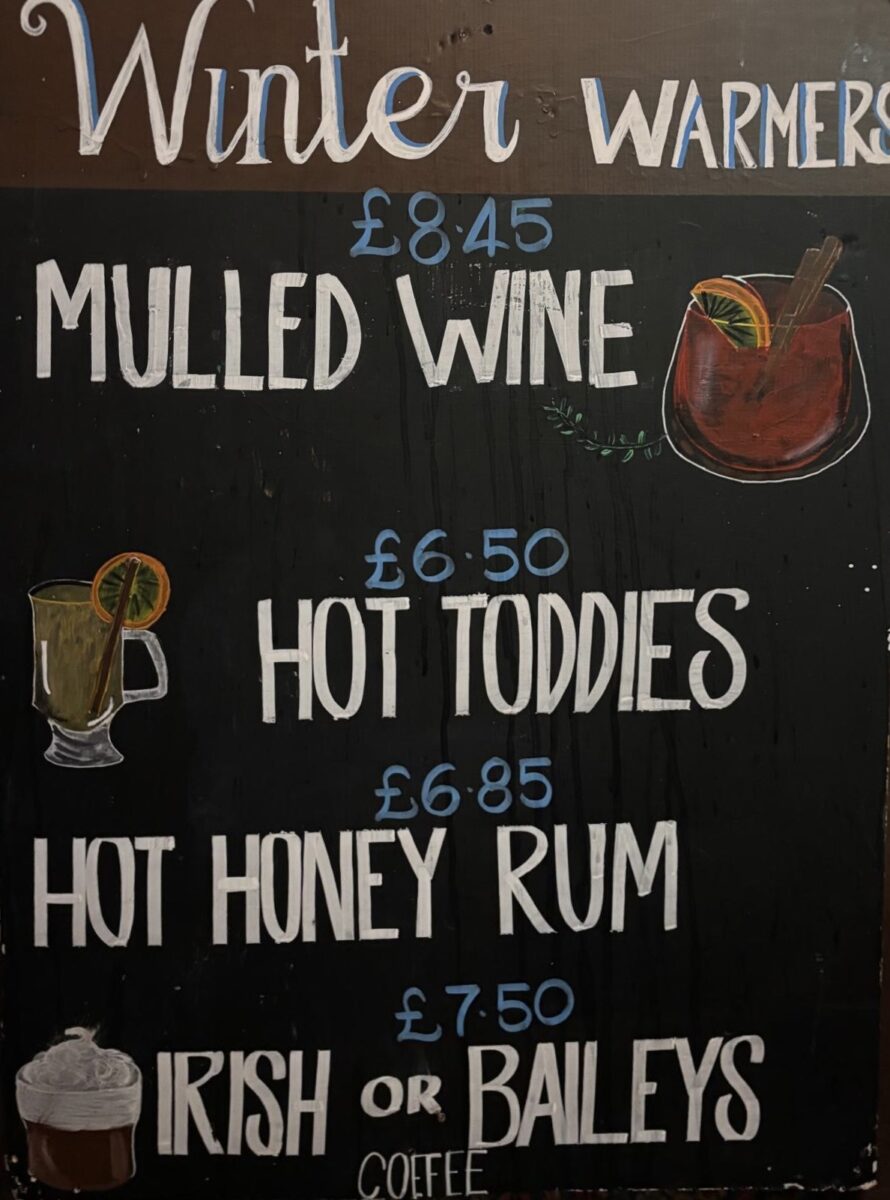 Winter WARMERS
£8.45
MULLED WINE
£6.50
HOT TODDIES
£6.85
HOT HONEY RUM
£7.50
IRISH OR BAILEYS
COFFEE